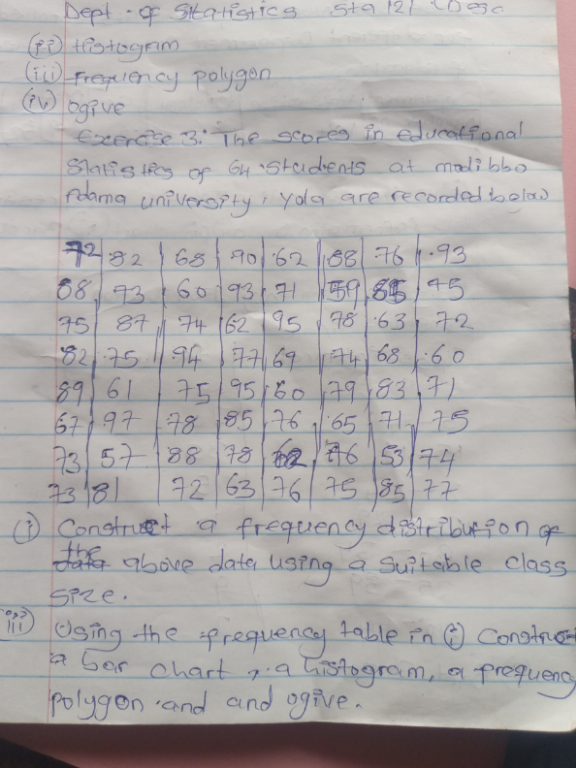 Dept. of Statistics Sta 121 Desc
(ii) Histogram
(iii) Frequency polygon
(iv) ogive
Exercise 3: The scores in educational
Statistics of 64 students at modibbo
Adama university, yola are recorded below
72 82 68 90 62 88 76 93
68 93 60 93 71 59 85 45
75 87 74 62 95 78 63 72
82 75 94 77 69 74 68 60
89 61 75 95 60 79 83 71
67 97 78 85 76 65 71 75
73 57 88 78 62 76 53 74
73 81 72 63 76 75 85 77
(i) Construct a frequency distribution of
the above data using a suitable class
size.
(ii) Using the frequency table in (i) Construct
a bar chart, a histogram, a frequency
polygon and and ogive.